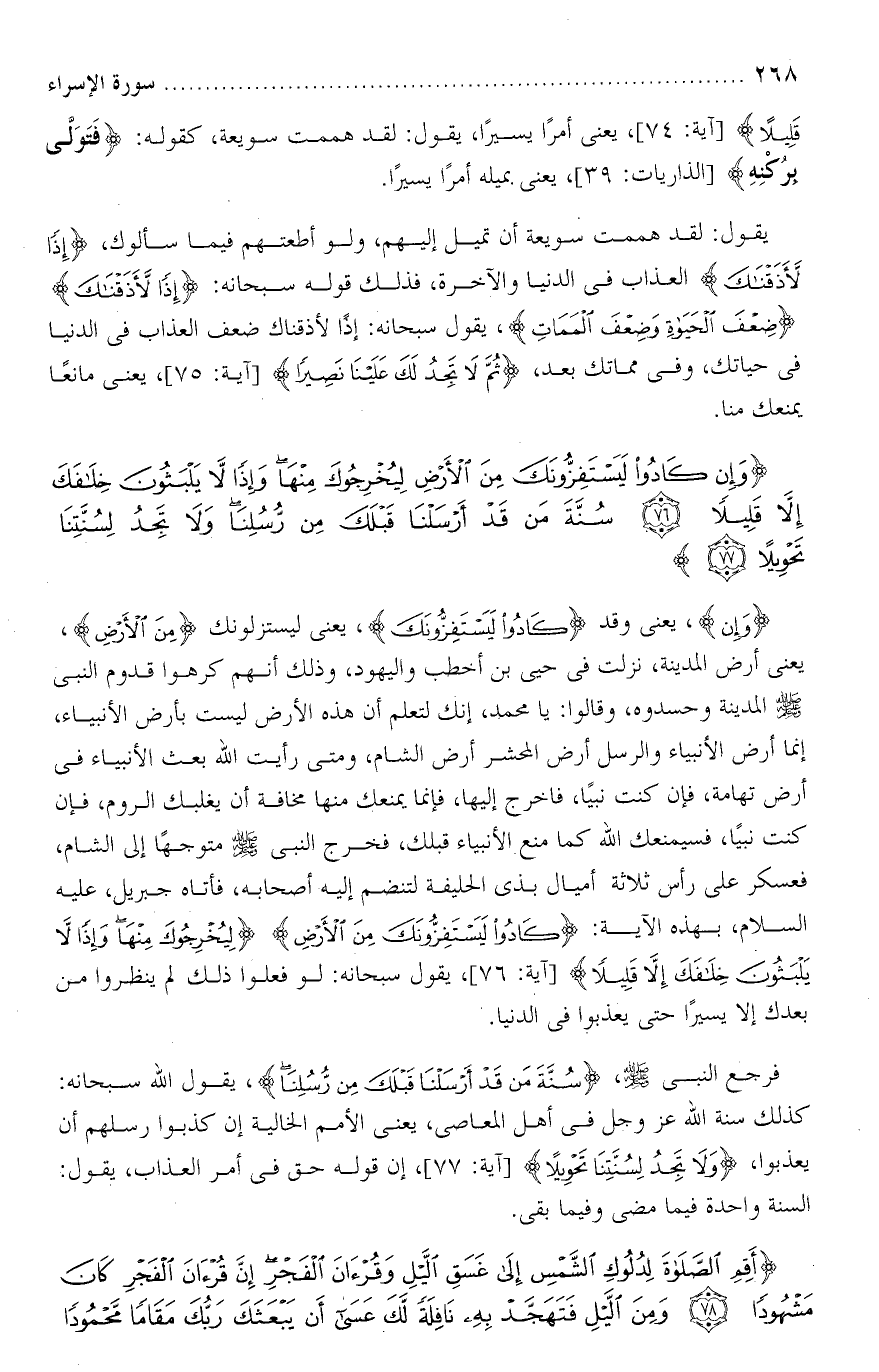 ٢٦٨ ........................................................................ سورة الإسراء
قَلِيلًا﴾ [آية: ٧٤]، يعنى أمرًا يسيرًا، يقول: لقد هممت سويعة، كقوله: ﴿فَتَوَلَّى
بِرُكْنِهِ﴾ [الذاريات: ٣٩]، يعنى بميله أمرًا يسيرًا.
يقول: لقد هممت سويعة أن تميل إليهم، ولو أطعتهم فيما سألوك، ﴿إِذًا
لَّأَذَقْنَٰكَ﴾ العذاب فى الدنيا والآخرة، فذلك قوله سبحانه: ﴿إِذًا لَّأَذَقْنَٰكَ﴾
﴿ضِعْفَ ٱلْحَيَوٰةِ وَضِعْفَ ٱلْمَمَاتِ﴾، يقول سبحانه: إذًا لأذقناك ضعف العذاب فى الدنيا
فى حياتك، وفى مماتك بعد، ﴿ثُمَّ لَا تَجِدُ لَكَ عَلَيْنَا نَصِيرًا﴾ [آية: ٧٥]، يعنى مانعًا
يمنعك منا.
﴿وَإِن كَادُوا۟ لَيَسْتَفِزُّونَكَ مِنَ ٱلْأَرْضِ لِيُخْرِجُوكَ مِنْهَا ۖ وَإِذًا لَّا يَلْبَثُونَ خِلَٰفَكَ
إِلَّا قَلِيلًا ٧٦ سُنَّةَ مَن قَدْ أَرْسَلْنَا قَبْلَكَ مِن رُّسُلِنَا ۖ وَلَا تَجِدُ لِسُنَّتِنَا
تَحْوِيلًا ٧٧﴾
﴿وَإِن﴾، يعنى وقد ﴿كَادُوا۟ لَيَسْتَفِزُّونَكَ﴾، يعنى ليستزلونك ﴿مِنَ ٱلْأَرْضِ﴾،
يعنى أرض المدينة، نزلت فى حيى بن أخطب واليهود، وذلك أنهم كرهوا قدوم النبى
ﷺ المدينة وحسدوه، وقالوا: يا محمد، إنك لتعلم أن هذه الأرض ليست بأرض الأنبياء،
إنما أرض الأنبياء والرسل أرض المحشر أرض الشام، ومتى رأيت الله بعث الأنبياء فى
أرض تهامة، فإن كنت نبيًا، فاخرج إليها، فإنما يمنعك منها مخافة أن يغلبك الروم، فإن
كنت نبيًا، فسيمنعك الله كما منع الأنبياء قبلك، فخرج النبى ﷺ متوجهًا إلى الشام،
فعسكر على رأس ثلاثة أميال بذى الحليفة لتنضم إليه أصحابه، فأتاه جبريل، عليه
السلام، بهذه الآية: ﴿كَادُوا۟ لَيَسْتَفِزُّونَكَ مِنَ ٱلْأَرْضِ﴾ ﴿لِيُخْرِجُوكَ مِنْهَا ۖ وَإِذًا لَّا
يَلْبَثُونَ خِلَٰفَكَ إِلَّا قَلِيلًا﴾ [آية: ٧٦]، يقول سبحانه: لو فعلوا ذلك لم ينظروا من
بعدك إلا يسيرًا حتى يعذبوا فى الدنيا.
فرجع النبى ﷺ، ﴿سُنَّةَ مَن قَدْ أَرْسَلْنَا قَبْلَكَ مِن رُّسُلِنَا ۖ﴾، يقول الله سبحانه:
كذلك سنة الله عز وجل فى أهل المعاصى، يعنى الأمم الخالية إن كذبوا رسلهم أن
يعذبوا، ﴿وَلَا تَجِدُ لِسُنَّتِنَا تَحْوِيلًا﴾ [آية: ٧٧]، إن قوله حق فى أمر العذاب، يقول:
السنة واحدة فيما مضى وفيما بقى.
﴿أَقِمِ ٱلصَّلَوٰةَ لِدُلُوكِ ٱلشَّمْسِ إِلَىٰ غَسَقِ ٱلَّيْلِ وَقُرْءَانَ ٱلْفَجْرِ ۖ إِنَّ قُرْءَانَ ٱلْفَجْرِ كَانَ
مَشْهُودًا ٧٨ وَمِنَ ٱلَّيْلِ فَتَهَجَّدْ بِهِۦ نَافِلَةً لَّكَ عَسَىٰٓ أَن يَبْعَثَكَ رَبُّكَ مَقَامًا مَّحْمُودًا